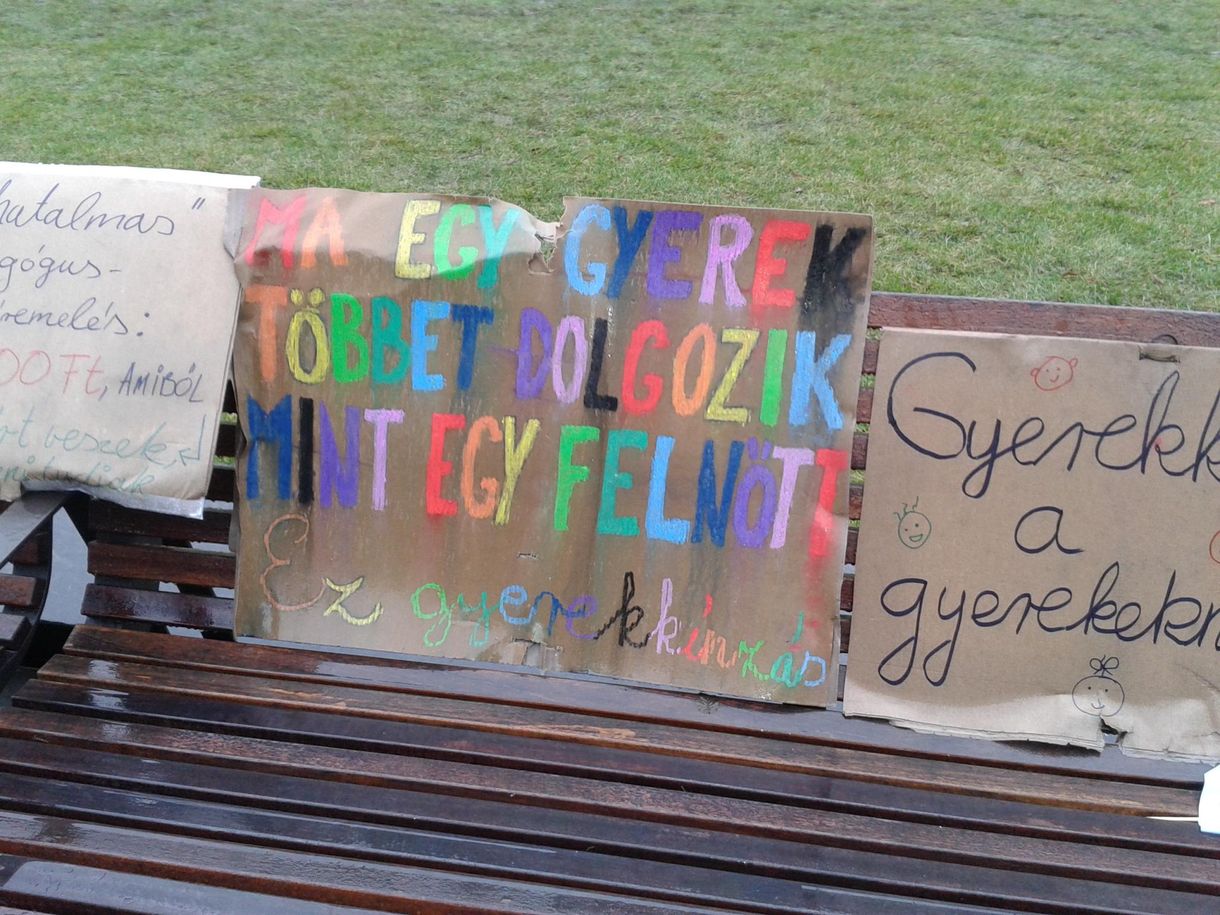 hatalmas"
gógus-
remelés:
00 Ft, AMIBÓL
veszek
MA EGY GYEREK
TÖBBET DOLGOZIK
MINT EGY FELNŐTT
Ez gyerekkínzás
Gyerekk
a
gyerekekn